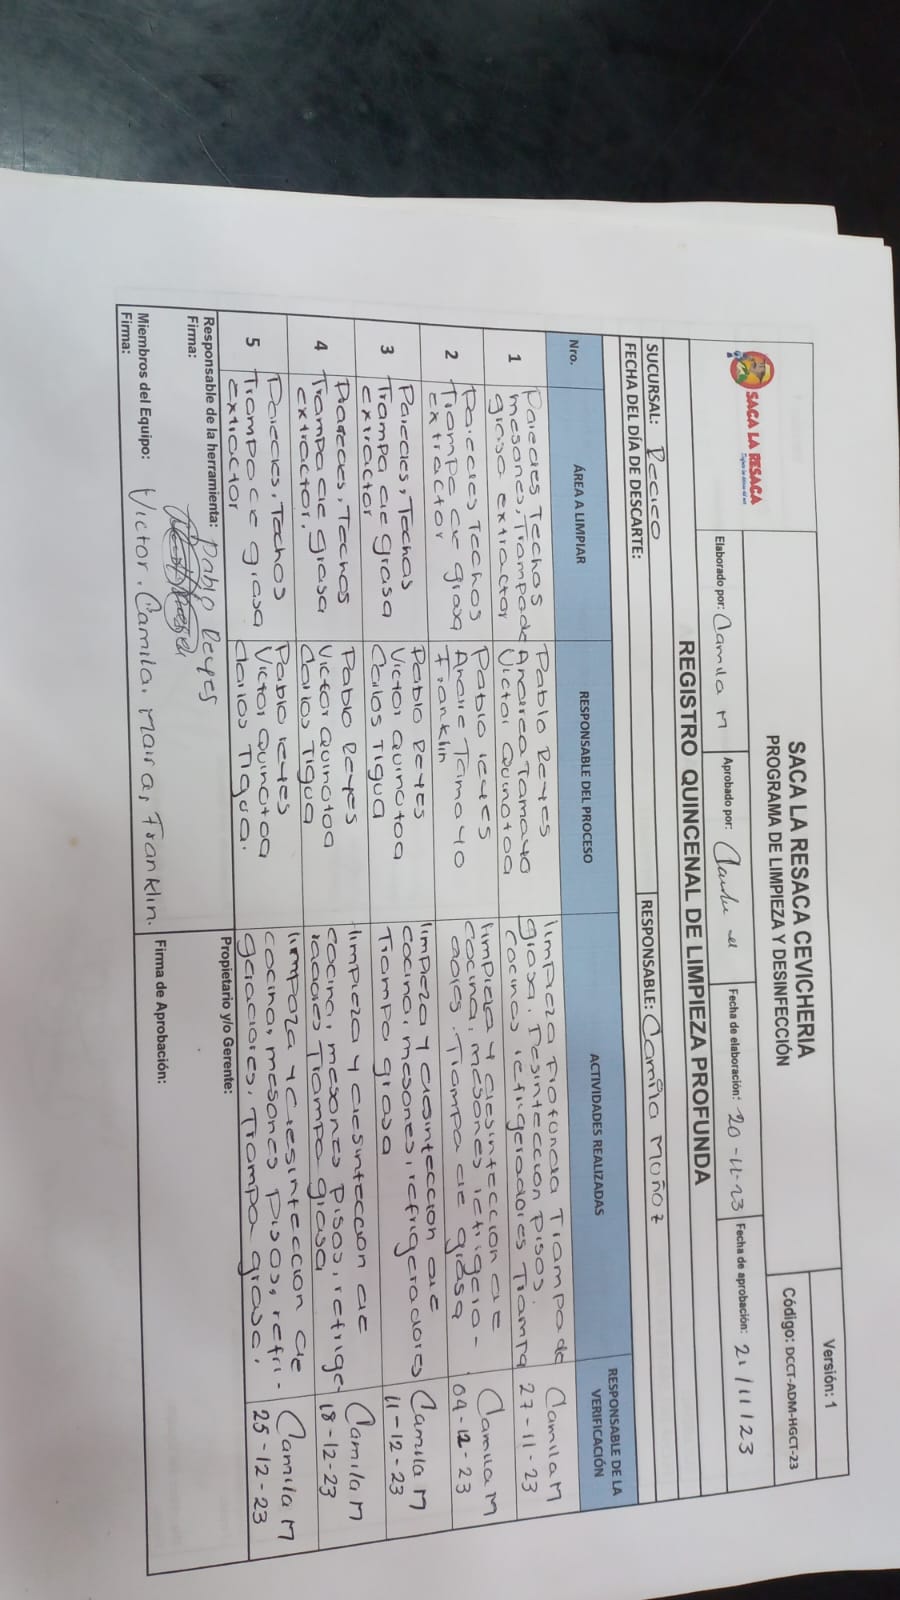 SACA LA RESACA
SACA LA RESACA CEVICHERIA
PROGRAMA DE LIMPIEZA Y DESINFECCIÓN
Versión: 1
Código: DCCT-ADM-HGCT-23
Elaborado por: Camila M
Aprobado por:
Fecha de elaboración: 20-11-23
Fecha de aprobación: 21/11/23
REGISTRO QUINCENAL DE LIMPIEZA PROFUNDA
SUCURSAL: Recreo
RESPONSABLE: Camila Muñoz
FECHA DEL DÍA DE DESCARTE:
Nro.
ÁREA A LIMPIAR
RESPONSABLE DEL PROCESO
ACTIVIDADES REALIZADAS
RESPONSABLE DE LA
VERIFICACIÓN
1
Paredes Techos
mesones, Trampa de
grasa extractor
Pablo Reyes
Andrea Tamayo
Victor Quinotoa
limpieza Profunda Trampa de
grasa. Desinfeccion pisos.
Cocinas refrigeradores Trampa
Camila M
27-11-23
2
Paredes Techos
Trampa de grasa
extractor
Pablo reyes
Andre Tamayo
Franklin
limpieza y desinfeccion de
cocina, mesones, refrigera-
dores. Trampa de grasa
Camila M
04-12-23
3
Paredes, Techos
Trampa de grasa
extractor
Pablo Reyes
Victor Quinotoa
Carlos Tigua
limpieza y desinfeccion de
cocina, mesones, refrigeradores
Trampa grasa
Camila M
11-12-23
4
Paredes, Techos
Trampa de grasa
extractor.
Pablo Reyes
Victor Quinotoa
Carlos Tigua
limpieza y desinfeccion de
cocina, mesones pisos, refrige-
radores Trampa grasa
Camila M
18-12-23
5
Paredes, Techos
Trampa de grasa
extractor
Pablo reyes
Victor Quinotoa
Carlos Tigua.
limpieza y desinfeccion de
cocina, mesones pisos, refri-
geradores, Trampa grasa.
Camila M
25-12-23
Responsable de la herramienta: Pablo Reyes
Firma:
Propietario y/o Gerente:
Miembros del Equipo: Victor, Camila, Maira, Franklin.
Firma:
Firma de Aprobación: